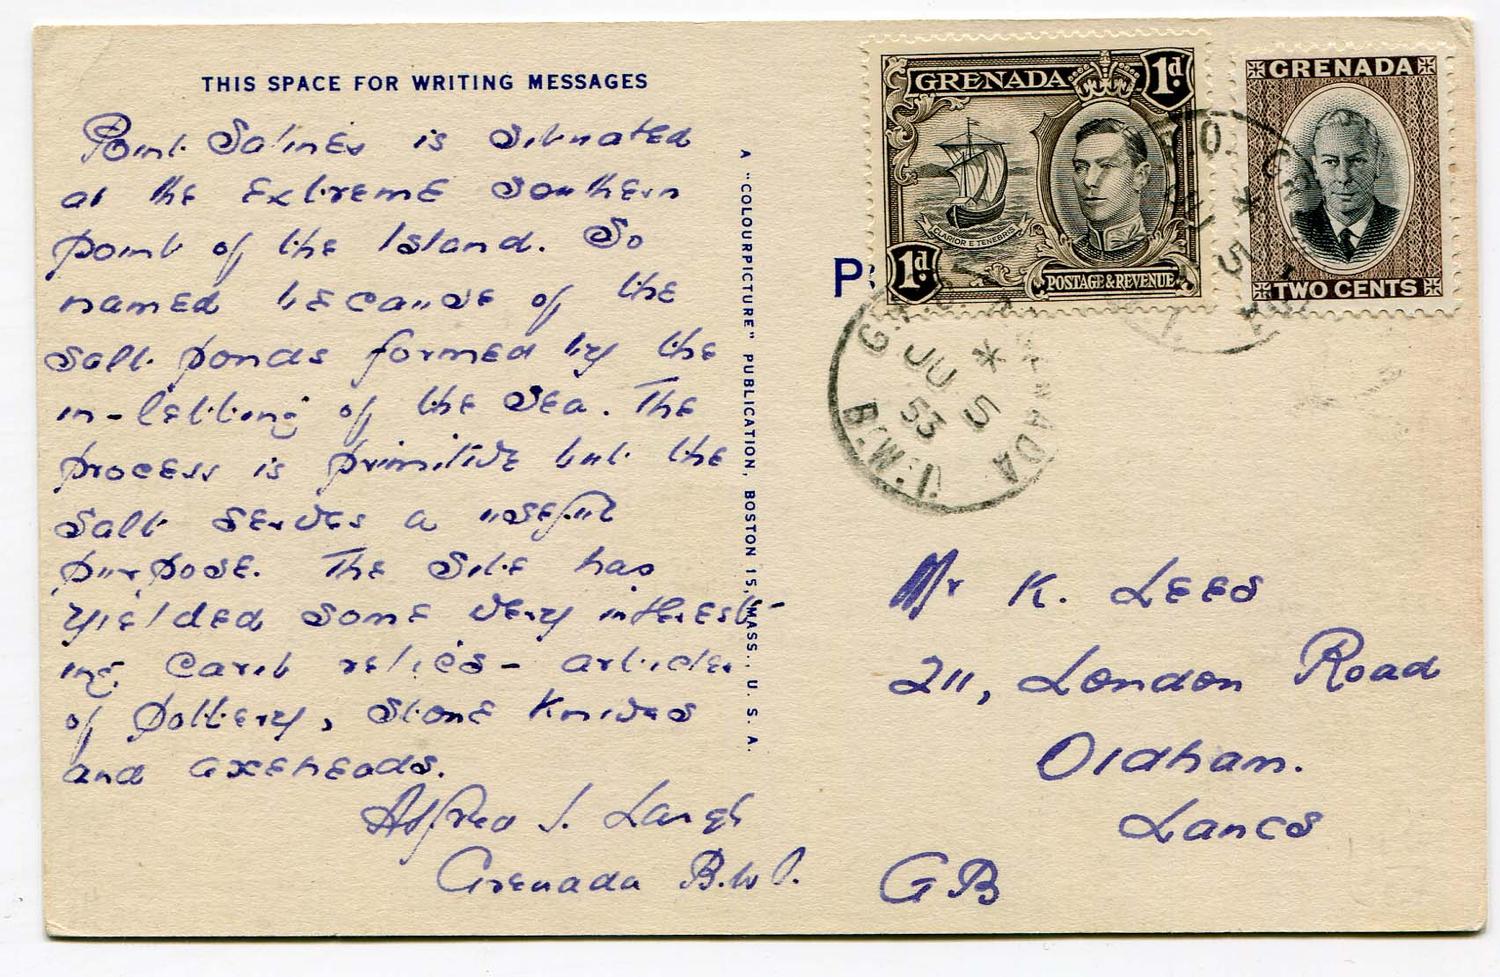 THIS SPACE FOR WRITING MESSAGES
Point Salines is situated
at the extreme southern
point of the Island. So
named because of the
salt ponds formed by the
in-letting of the sea. The
process is primitive but the
salt serves a useful
purpose. The site has
yielded some very interest-
ing Carib relics - articles
of pottery, stone knives
and axeheads.
Alfred J.
Grenada B.W.I.
A "COLOURPICTURE" PUBLICATION, BOSTON 15, MASS., U. S. A.
GRENADA 1d
CLARIOR E TENEBRIS
1d POSTAGE & REVENUE
GRENADA
TWO CENTS
JU 5
53
B.W.I.
Mr K. Lees
211, London Road
Oldham.
Lancs
GB